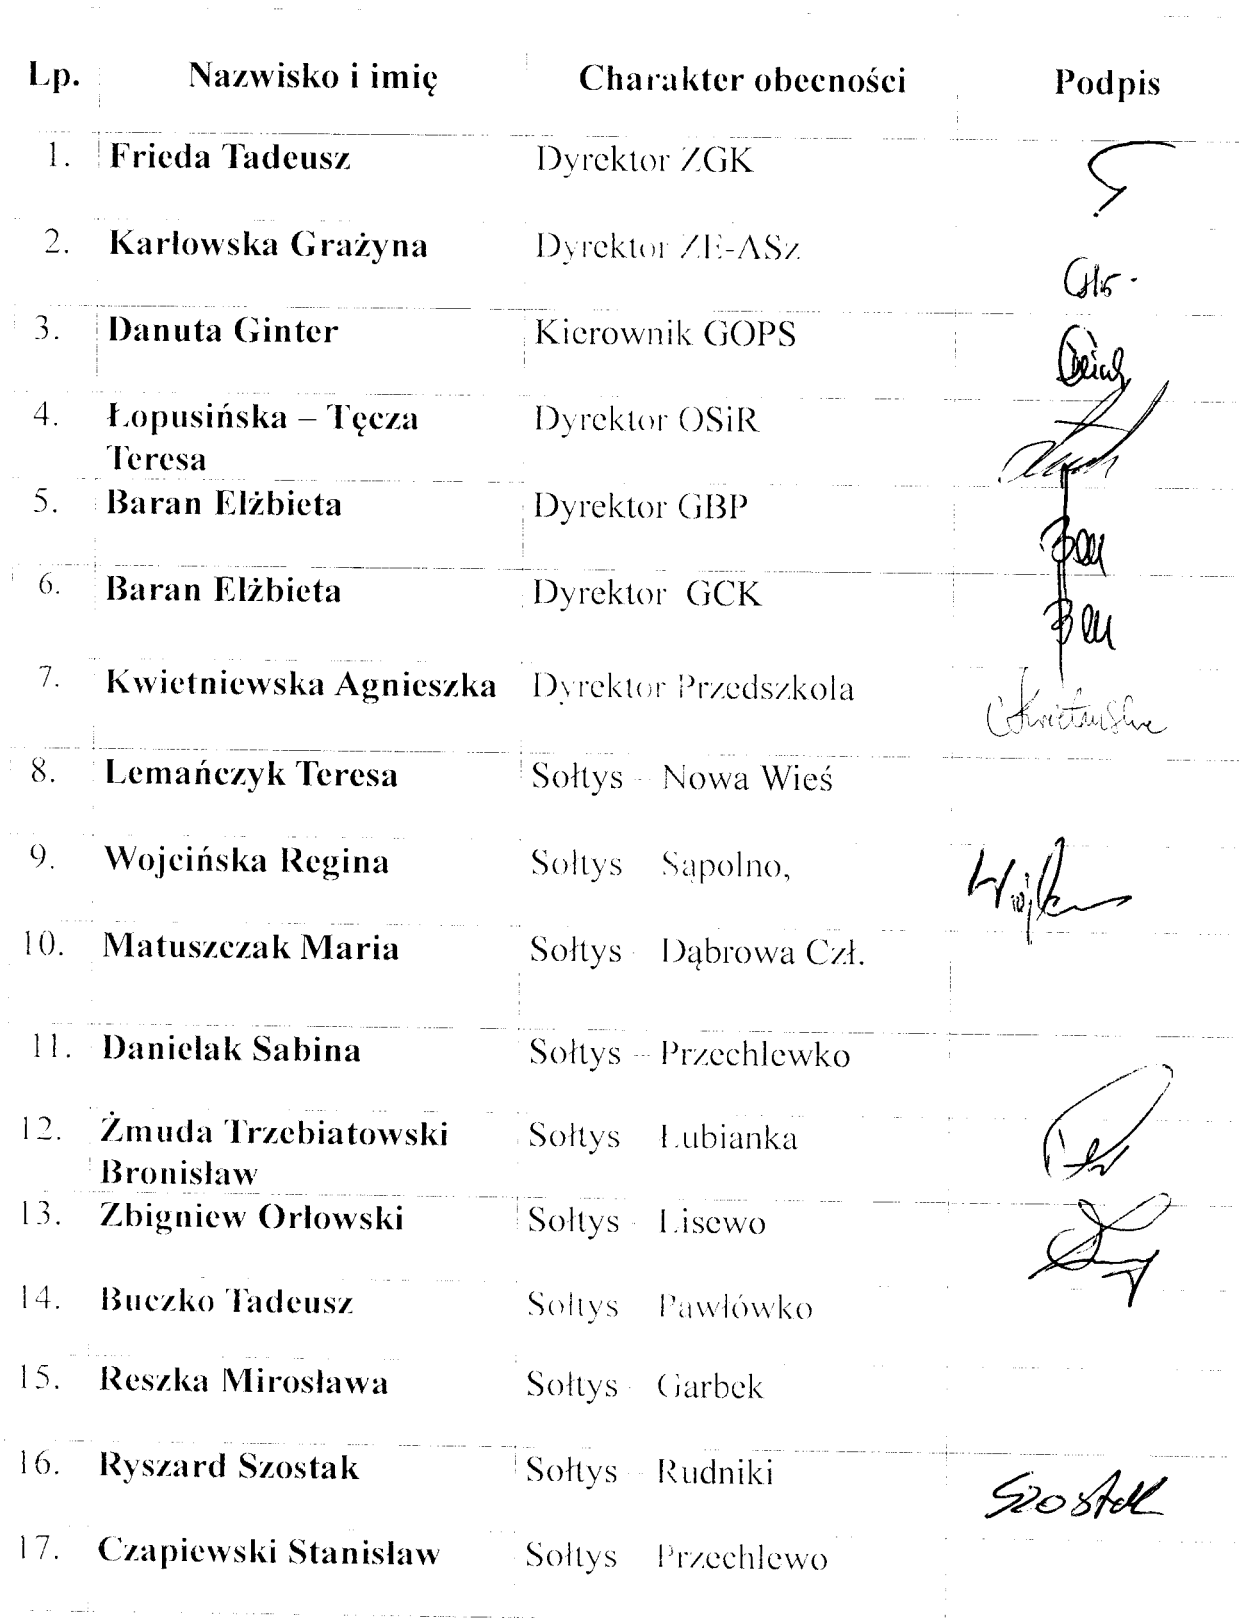 Lp. Nazwisko i imię Charakter obecności Podpis
1. Frieda Tadeusz Dyrektor ZGK
2. Karłowska Grażyna Dyrektor ZE-ASz
3. Danuta Ginter Kierownik GOPS
4. Łopusińska – Tęcza Dyrektor OSiR
Teresa
5. Baran Elżbieta Dyrektor GBP
6. Baran Elżbieta Dyrektor GCK
7. Kwietniewska Agnieszka Dyrektor Przedszkola
8. Lemańczyk Teresa Sołtys – Nowa Wieś
9. Wojcińska Regina Sołtys Sąpolno,
10. Matuszczak Maria Sołtys - Dąbrowa Czł.
11. Danielak Sabina Sołtys – Przechlewko
12. Żmuda Trzebiatowski Sołtys Łubianka
Bronisław
13. Zbigniew Orłowski Sołtys - Lisewo
14. Buczko Tadeusz Sołtys Pawłówko
15. Reszka Mirosława Sołtys - Garbek
16. Ryszard Szostak Sołtys – Rudniki Szostak
17. Czapiewski Stanisław Sołtys Przechlewo